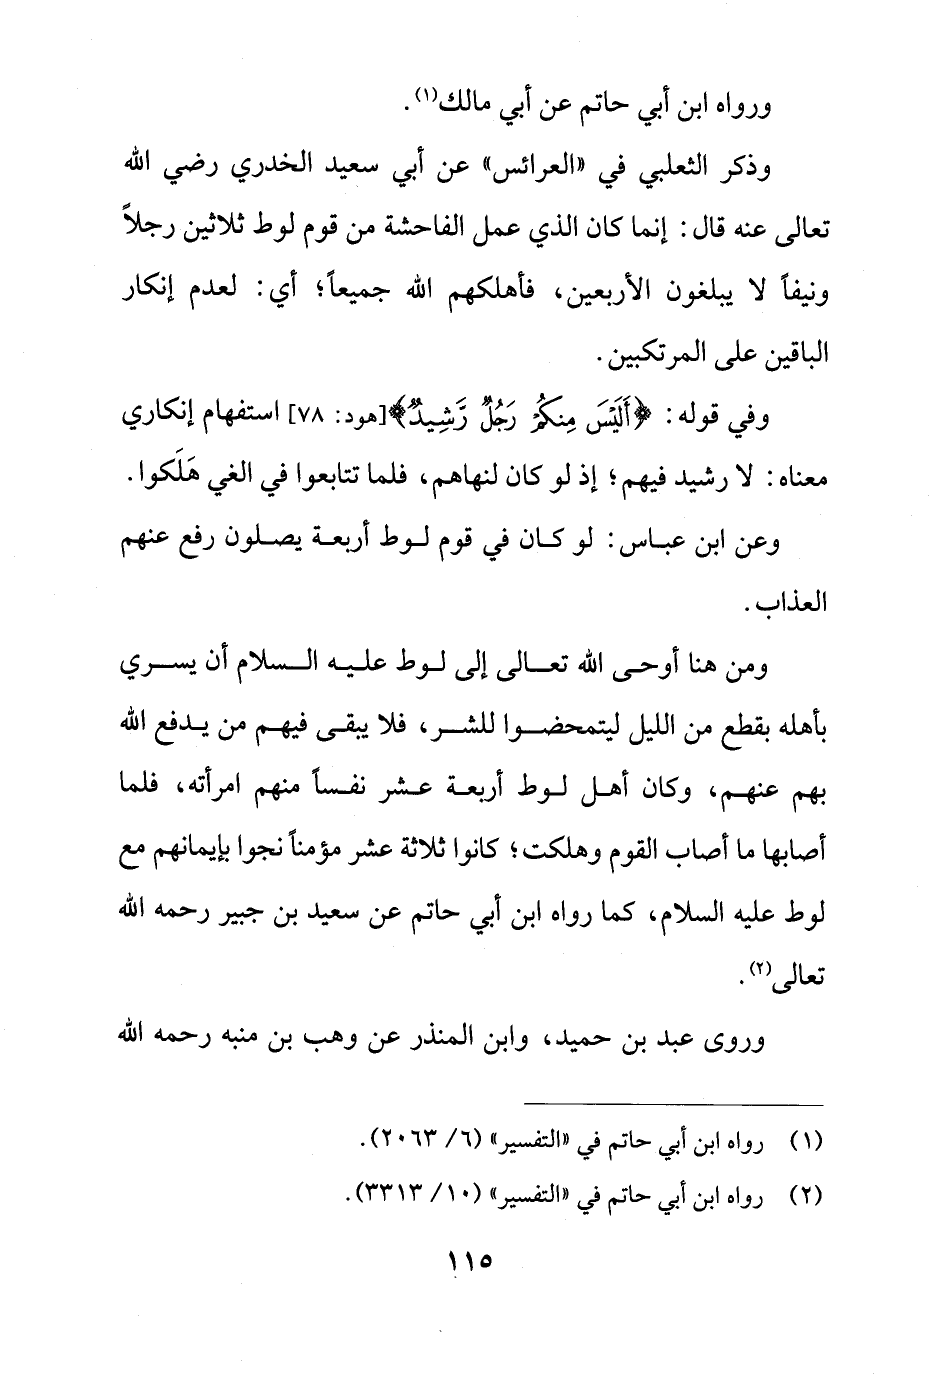 ورواه ابن أبي حاتم عن أبي مالك(١).
وذكر الثعلبي في «العرائس» عن أبي سعيد الخدري رضي الله
تعالى عنه قال: إنما كان الذي عمل الفاحشة من قوم لوط ثلاثين رجلاً
ونيفاً لا يبلغون الأربعين، فأهلكهم الله جميعاً؛ أي: لعدم إنكار
الباقين على المرتكبين.
وفي قوله: ﴿أَلَيْسَ مِنكُمْ رَجُلٌ رَّشِيدٌ﴾[هود: ٧٨] استفهام إنكاري
معناه: لا رشيد فيهم؛ إذ لو كان لنهاهم، فلما تتابعوا في الغي هَلَكوا.
وعن ابن عباس: لو كان في قوم لوط أربعة يصلون رفع عنهم
العذاب.
ومن هنا أوحى الله تعالى إلى لوط عليه السلام أن يسري
بأهله بقطع من الليل ليتمحضوا للشر، فلا يبقى فيهم من يدفع الله
بهم عنهم، وكان أهل لوط أربعة عشر نفساً منهم امرأته، فلما
أصابها ما أصاب القوم وهلكت؛ كانوا ثلاثة عشر مؤمناً نجوا بإيمانهم مع
لوط عليه السلام، كما رواه ابن أبي حاتم عن سعيد بن جبير رحمه الله
تعالى(٢).
وروى عبد بن حميد، وابن المنذر عن وهب بن منبه رحمه الله
(١) رواه ابن أبي حاتم في «التفسير» (٦/ ٢٠٦٣).
(٢) رواه ابن أبي حاتم في «التفسير» (١٠/ ٣٣١٣).
١١٥